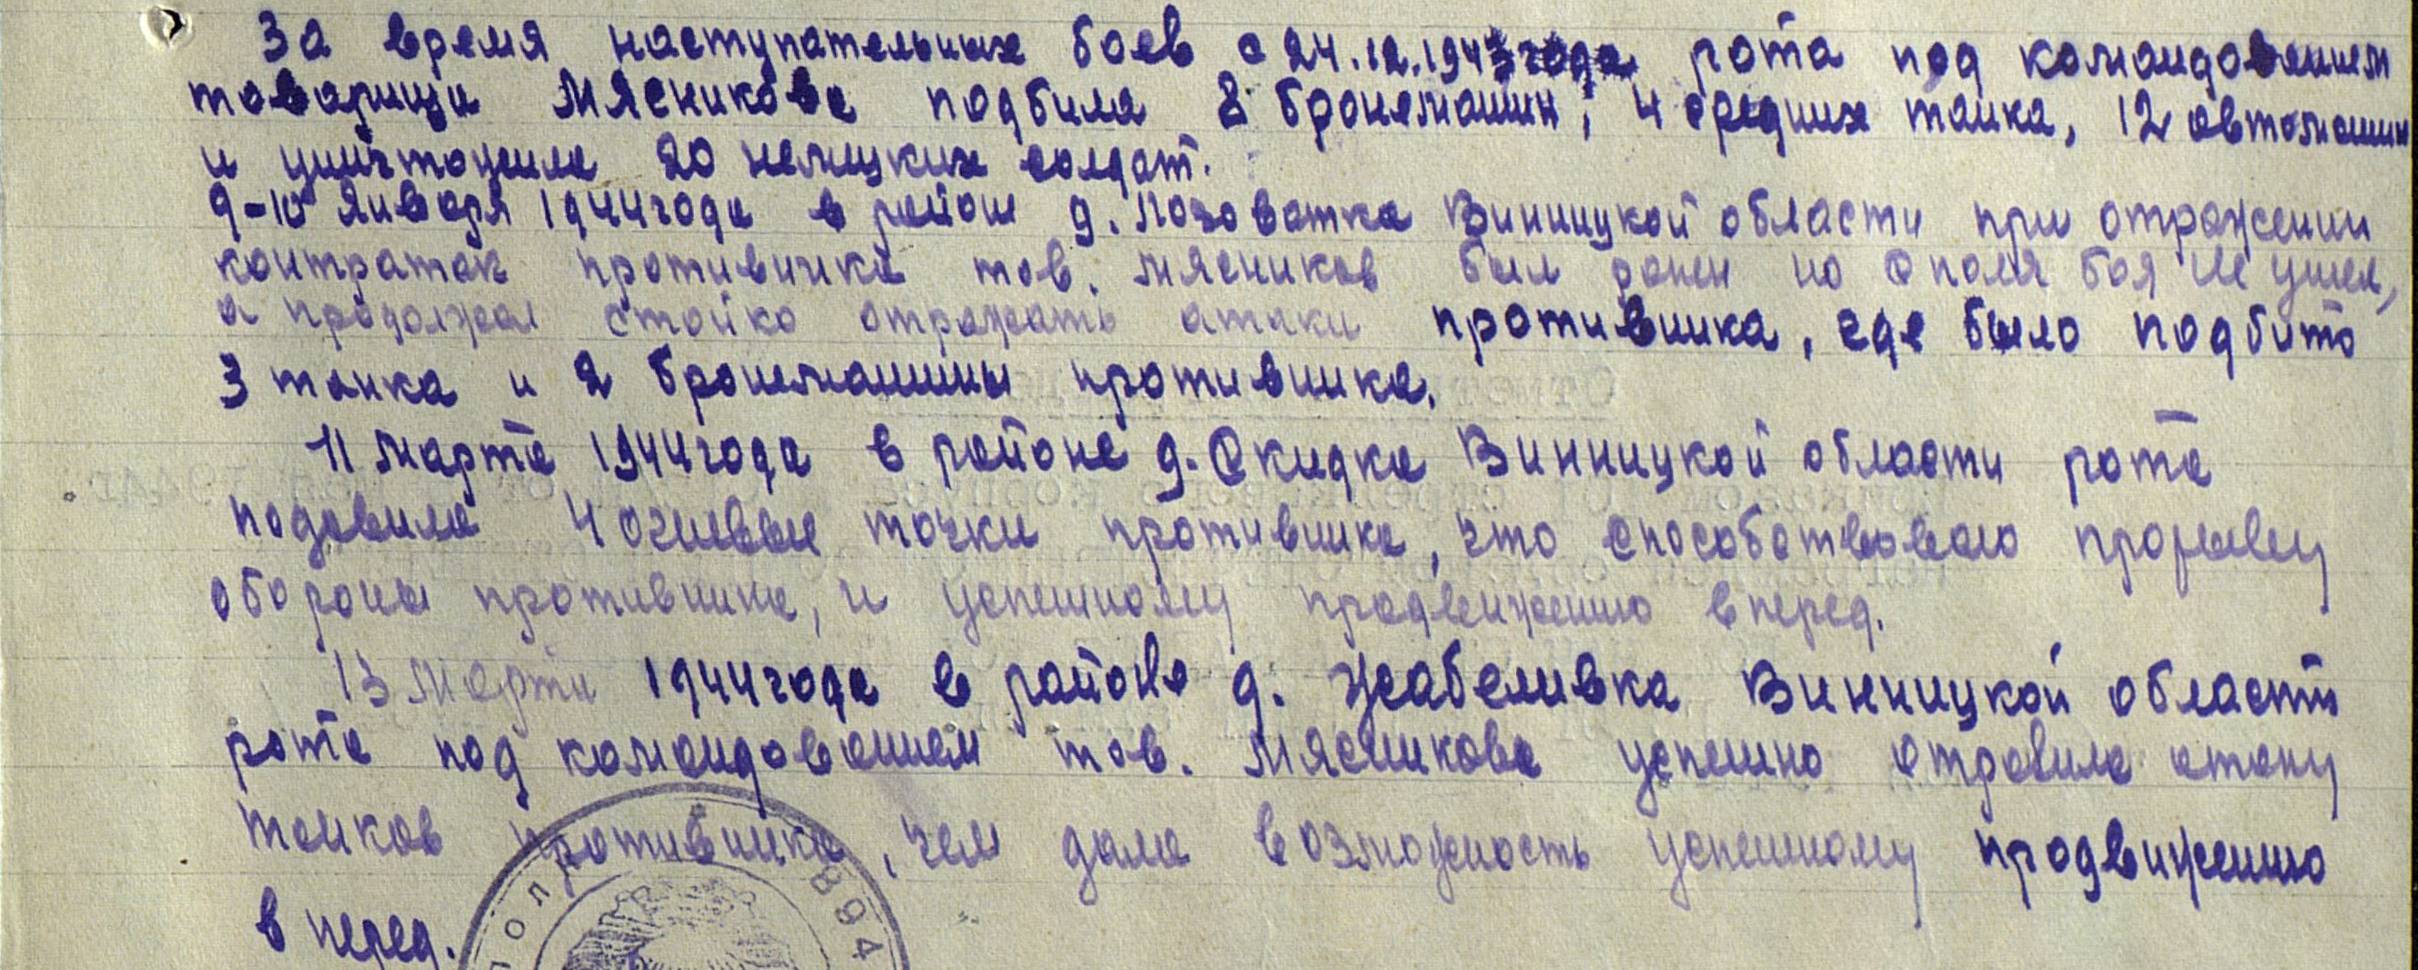 За время наступательных боев с 24.12.1943 года рота под командованием
товарища Мясникова подбила 8 бронемашин, 4 средних танка, 12 автомашин
и уничтожила 20 немецких солдат.
9-10 января 1944 года в районе д. Лозоватка Винницкой области при отражении
контратак противника тов. Мясников был ранен но с поля боя не ушел,
а продолжал стойко отражать атаки противника, где было подбито
3 танка и 2 бронемашины противника.
11 марта 1944 года в районе д. Скидка Винницкой области рота
подавила 4 огневые точки противника, что способствовало прорыву
обороны противника, и успешному продвижению вперед.
13 марта 1944 года в районе д. Жабеливка Винницкой области
рота под командованием тов. Мясникова успешно отравила атаку
танков противника, чем дала возможность успешному продвижению
вперед.
894